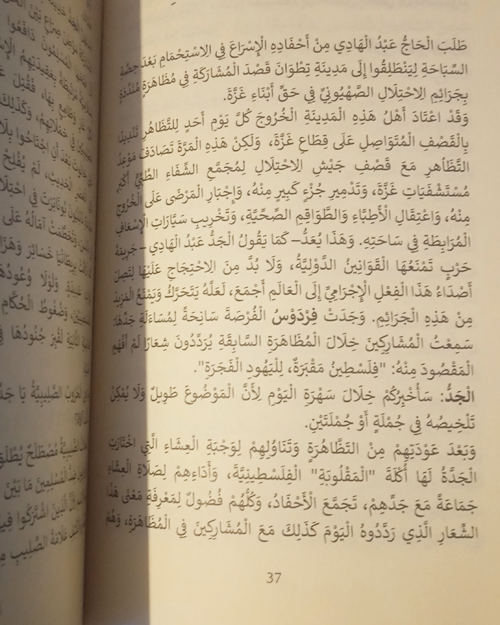 طَلَبَ الْحَاجُّ عَبْدُ الْهَادِي مِنْ أَحْفَادِهِ الْإِسْرَاعَ فِي الِاسْتِحْمَامِ بَعْدَ حِصَّةِ
السِّبَاحَةِ لِيَنْطَلِقُوا إِلَى مَدِينَةِ تِطْوَانَ قَصْدَ الْمُشَارَكَةِ فِي مُظَاهَرَةٍ مُنَدِّدَةٍ
بِجَرَائِمِ الِاحْتِلَالِ الصَّهْيُونِيِّ فِي حَقِّ أَبْنَاءِ غَزَّةَ.
وَقَدْ اعْتَادَ أَهْلُ هَذِهِ الْمَدِينَةِ الْخُرُوجَ كُلَّ يَوْمِ أَحَدٍ لِلتَّظَاهُرِ تَنْدِيدًا
بِالْقَصْفِ الْمُتَوَاصِلِ عَلَى قِطَاعِ غَزَّةَ، وَلَكِنْ هَذِهِ الْمَرَّةَ تَصَادَفَ مَوْعِدُ
التَّظَاهُرِ مَعَ قَصْفِ جَيْشِ الِاحْتِلَالِ لِمُجَمَّعِ الشِّفَاءِ الطِّبِّيِّ أَكْبَرِ
مُسْتَشْفَيَاتِ غَزَّةَ، وَتَدْمِيرِ جُزْءٍ كَبِيرٍ مِنْهُ، وَإِجْبَارِ الْمَرْضَى عَلَى الْخُرُوجِ
مِنْهُ، وَاعْتِقَالِ الْأَطِبَّاءِ وَالطَّوَاقِمِ الصِّحِّيَّةِ، وَتَخْرِيبِ سَيَّارَاتِ الْإِسْعَافِ
الْمُرَابِطَةِ فِي سَاحَتِهِ. وَهَذَا يُعَدُّ–كَمَا يَقُولُ الْجَدُّ عَبْدُ الْهَادِي–جَرِيمَةَ
حَرْبٍ تَمْنَعُهَا الْقَوَانِينُ الدَّوْلِيَّةُ، وَلَا بُدَّ مِنَ الِاحْتِجَاجِ عَلَيْهَا لِتَصِلَ
أَصْدَاءُ هَذَا الْفِعْلِ الْإِجْرَامِيِّ إِلَى الْعَالَمِ أَجْمَعَ، لَعَلَّهُ يَتَحَرَّكُ وَيَمْنَعُ الْمَزِيدَ
مِنْ هَذِهِ الْجَرَائِمِ. وَجَدَتْ فِرْدَوْسُ الْفُرْصَةَ سَانِحَةً لِمُسَاءَلَةِ جَدِّهَا:
سَمِعْتُ الْمُشَارِكِينَ خِلَالَ الْمُظَاهَرَةِ السَّابِقَةِ يُرَدِّدُونَ شِعَارًا لَمْ أَفْهَمِ
الْمَقْصُودَ مِنْهُ: "فِلَسْطِينُ مَقْبَرَةٌ، لِلْيَهُودِ الْفَجَرَةِ".
الْجَدُّ: سَأُخْبِرُكُمْ خِلَالَ سَهْرَةِ الْيَوْمِ لِأَنَّ الْمَوْضُوعَ طَوِيلٌ وَلَا يُمْكِنُ
تَلْخِيصُهُ فِي جُمْلَةٍ أَوْ جُمْلَتَيْنِ.
وَبَعْدَ عَوْدَتِهِمْ مِنَ التَّظَاهُرَةِ وَتَنَاوُلِهِمْ لِوَجْبَةِ الْعِشَاءِ الَّتِي اخْتَارَتِ
الْجَدَّةُ لَهَا أُكْلَةَ "الْمَقْلُوبَةِ" الْفِلَسْطِينِيَّةَ، وَأَدَاءِهِمْ لِصَلَاةِ الْعِشَاءِ
جَمَاعَةً مَعَ جَدِّهِمْ، تَجَمَّعَ الْأَحْفَادُ، وَكُلُّهُمْ فُضُولٌ لِمَعْرِفَةِ مَعْنَى هَذَا
الشِّعَارِ الَّذِي رَدَّدُوهُ الْيَوْمَ كَذَلِكَ مَعَ الْمُشَارِكِينَ فِي الْمُظَاهَرَةِ، وَهُمْ
37